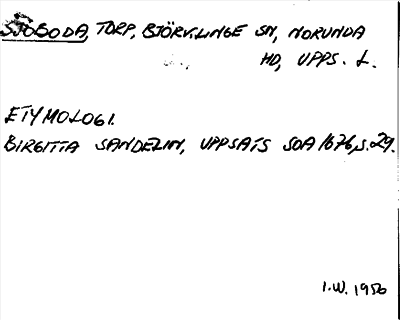 SJÖBODA, TORP, BJÖRKLINGE SN, NORUNDA
HD, UPPS. L.
ETYMOLOGI.
BIRGITTA SANDELIN, UPPSATS SOA 1676, s. 29.
I.W. 1956